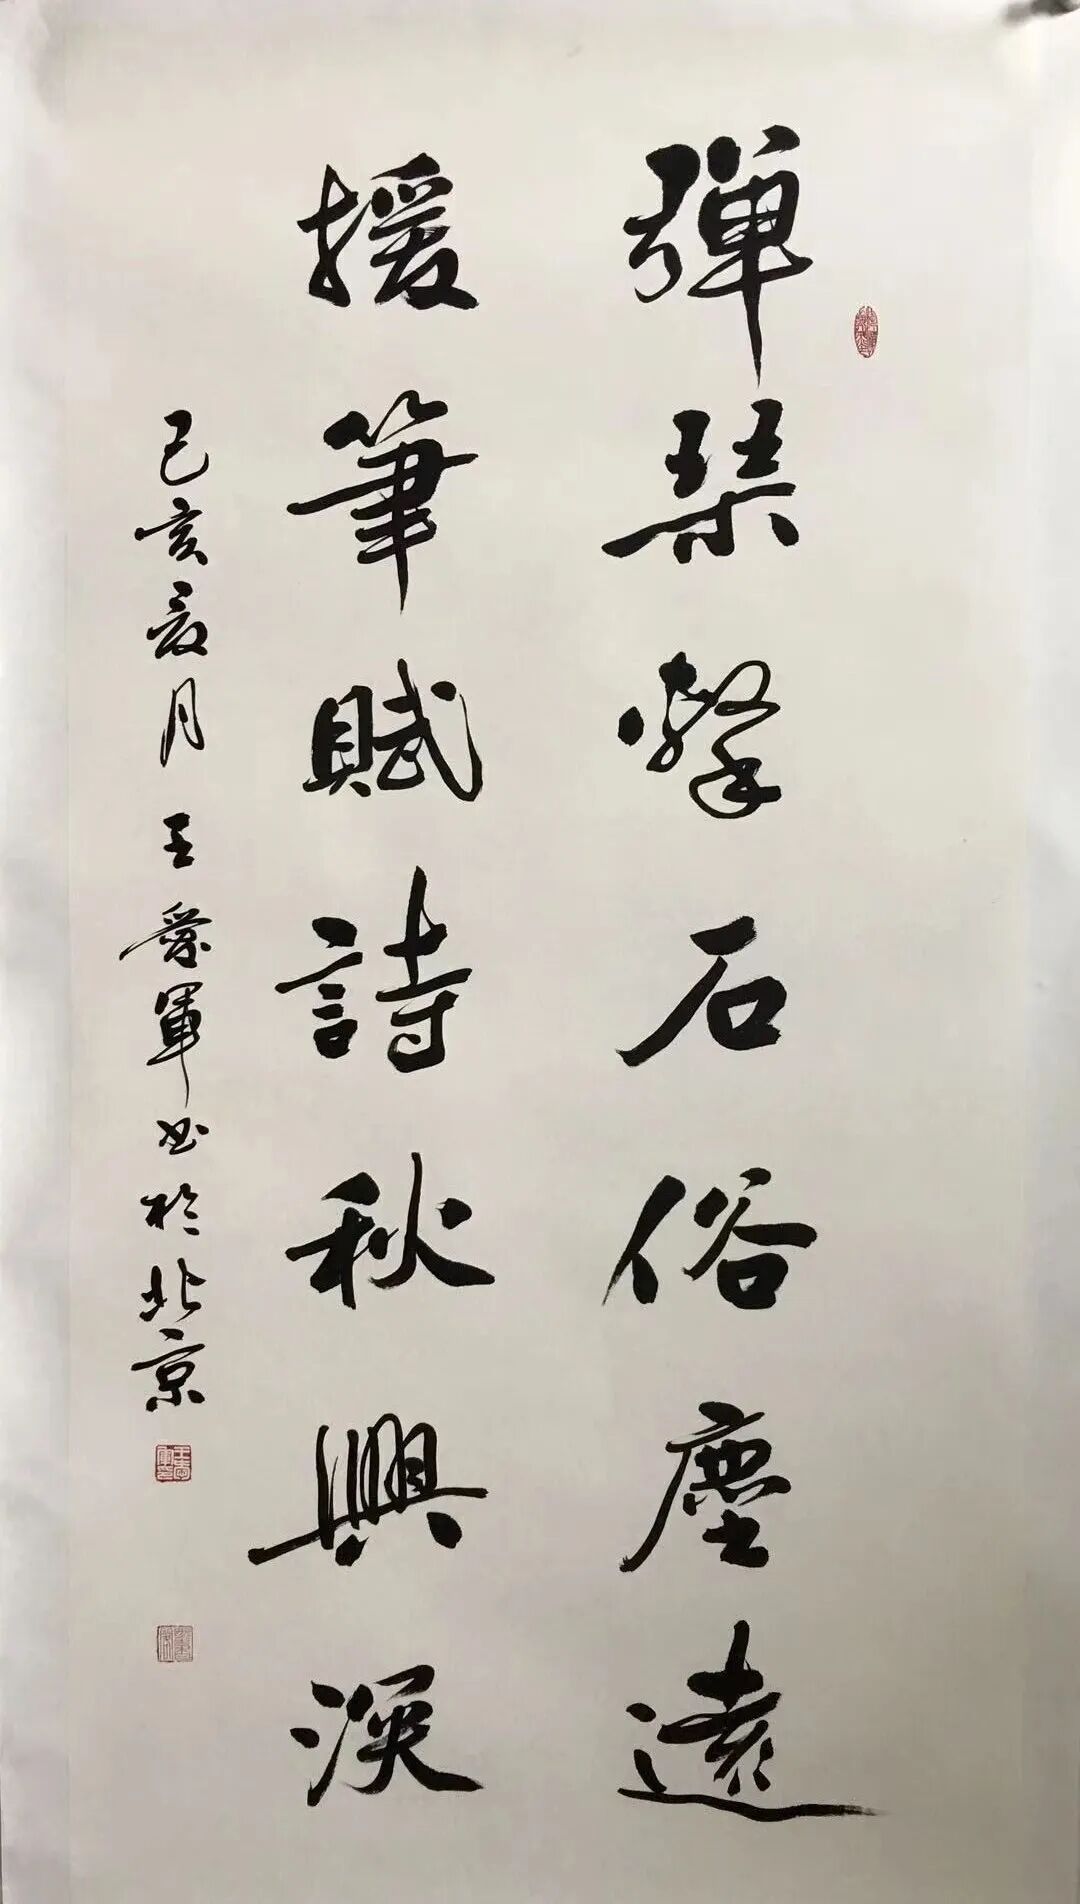 弹琴擊石俗塵遠
援筆賦詩秋興深
己亥夏月王愛軍书於北京